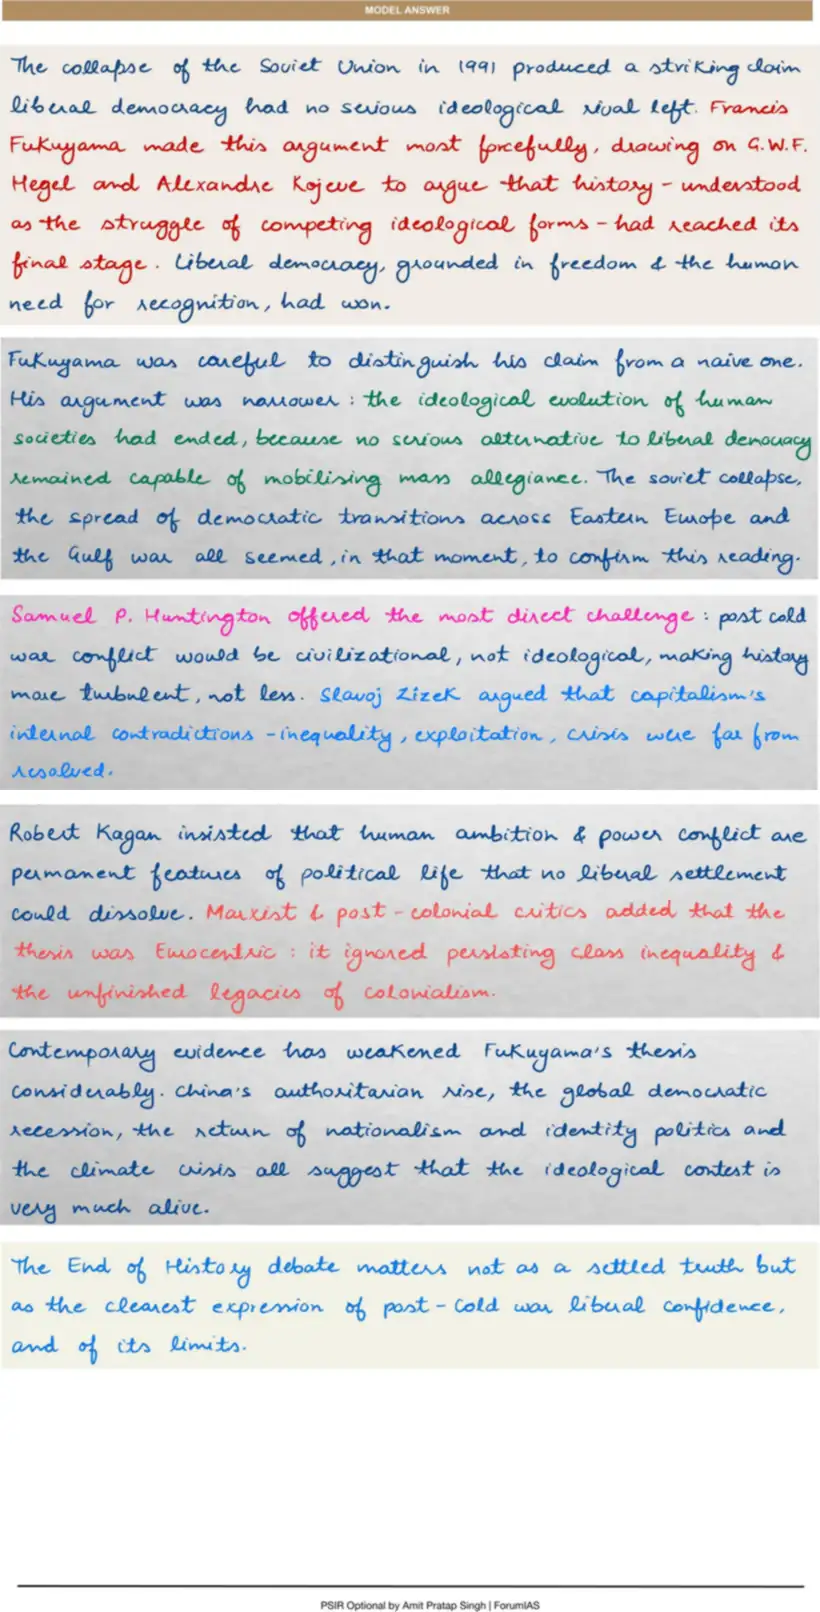 MODEL ANSWER
The collapse of the Soviet Union in 1991 produced a striking claim
liberal democracy had no serious ideological rival left. Francis
Fukuyama made this argument most forcefully, drawing on G.W.F.
Hegel and Alexandre Kojeve to argue that history - understood
as the struggle of competing ideological forms - had reached its
final stage. Liberal democracy, grounded in freedom & the human
need for recognition, had won.
Fukuyama was careful to distinguish his claim from a naive one.
His argument was narrower : the ideological evolution of human
societies had ended, because no serious alternative to liberal democracy
remained capable of mobilising mass allegiance. The soviet collapse,
the spread of democratic transitions across Eastern Europe and
the Gulf war all seemed, in that moment, to confirm this reading.
Samuel P. Huntington offered the most direct challenge : post cold
war conflict would be civilizational, not ideological, making history
more turbulent, not less. Slavoj Zizek argued that capitalism's
internal contradictions - inequality, exploitation, crisis were far from
resolved.
Robert Kagan insisted that human ambition & power conflict are
permanent features of political life that no liberal settlement
could dissolve. Marxist & post - colonial critics added that the
thesis was Eurocentric : it ignored persisting class inequality &
the unfinished legacies of colonialism.
Contemporary evidence has weakened Fukuyama's thesis
considerably. China's authoritarian rise, the global democratic
recession, the return of nationalism and identity politics and
the climate crisis all suggest that the ideological contest is
very much alive.
The End of History debate matters not as a settled truth but
as the clearest expression of post - Cold war liberal confidence,
and of its limits.
PSIR Optional by Amit Pratap Singh | ForumIAS